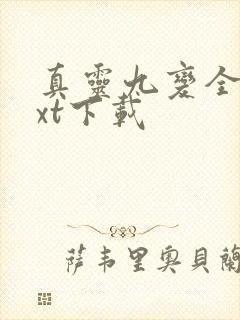 真靈九變全
xt下載
薩韦里奧貝蘭